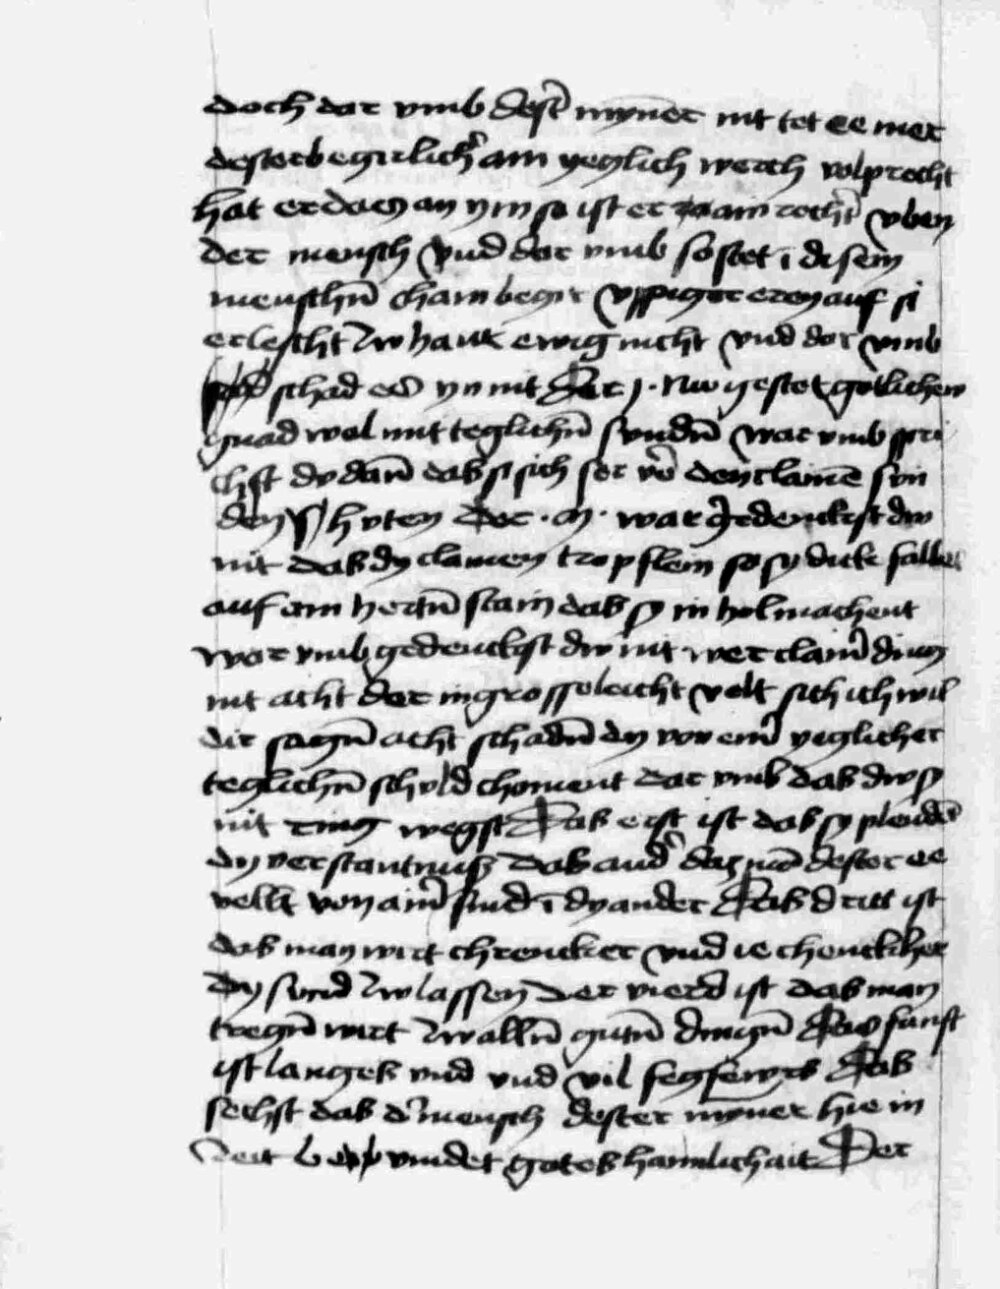 doch dar vmb dest̄ mynner nit tet ee mer
dester begirlich̄ am yeglich werch volprocht
hat er daez an ym so ist er zaain rechīt vben
der mensch vnd dar vmb so stet ī disem
menschn̄ chain begir vppiger eren auf si
erlescht zwhant ewig nicht vnd dar vmb
schad es yn nit Der j. Nw gestet gotlichew
gnad wol mit teglichn̄ sundn̄ war vmb spri
chst dv dan̄ das si sich ser vō den clainē sun
den hyten Der . m . war gedenckst dw
nit das dy clainen tropflein so sy dick falln̄
auf ain hertn̄ stain das sy in hol machent
war vmb gedenckst dw nit wer clain̄ ding
nit acht der in grosse leicht velt sich ich wil
dir sagn̄ acht schadn̄ dy von ein̄ yeglicher
teglichn̄ schvld choment dar vmb das dw sy
nit ring wegst Das erst ist das sy plendn̄
dy verstantnuss das and̄ daz mā dester ee
vellt von ain̄ sund ī dy ander Das dritt ist
das man wirt chrencker vnd ie chencklicher
dy sund zwlassen Der vierd ist das man
tregn̄ wirt zw alln̄ gutn̄ dingn̄ Das funft
ist langes vnd vnd vil fegfewrs Das
sechst das d̄ mensch dester myner hie in
zeit vindet gotes haimlichait Der